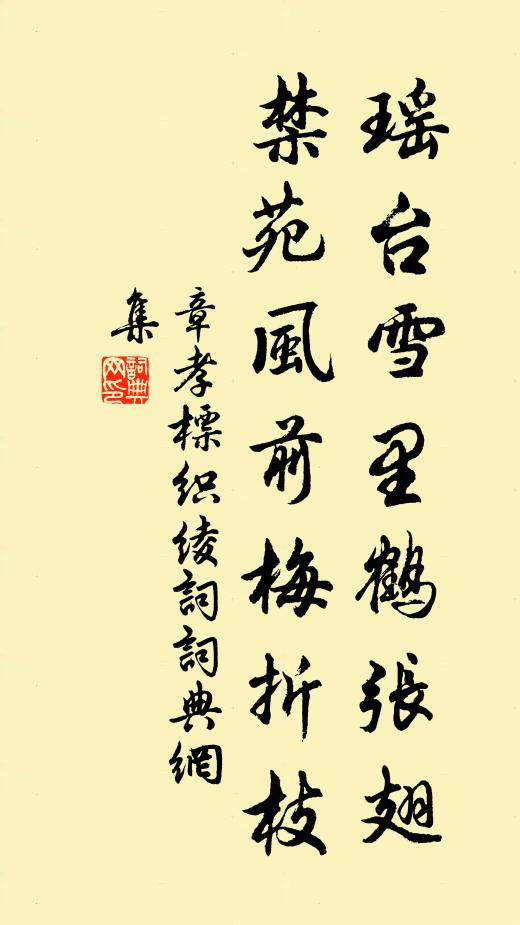 瑶台雪里鹤張翅
禁苑風前梅折枝
章孝標织绫詞詞典網
集
詞典
网印